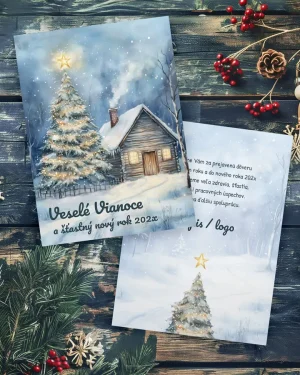 Veselé Vianoce
a šťastný nový rok 202x
Vám za prejavenú dôveru
roku a do nového roka 202x
veľa zdravia, šťastia,
pracovných úspechov
ďalšiu spoluprácu.
is / logo